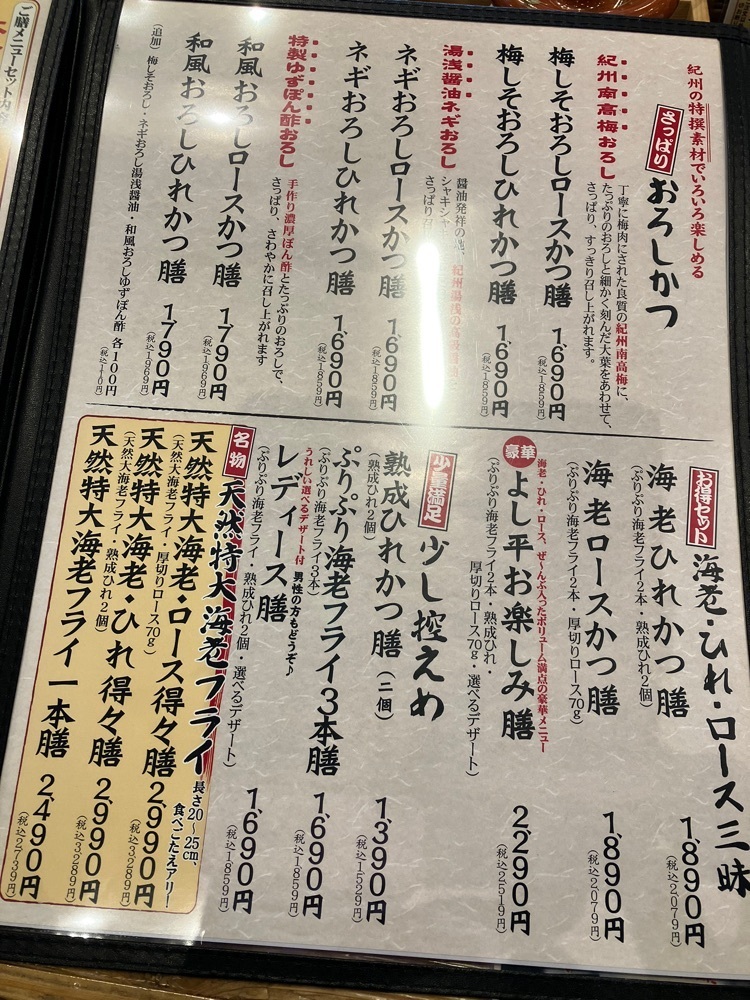 紀州の特撰素材でいろいろ楽しめる
さっぱり
おろしかつ
紀州南高梅おろし
丁寧に梅肉にされた良質の紀州南高梅に、
たっぷりのおろしと細かく刻んだ大葉をあわせて、
さっぱり、すっきり召し上がれます。
梅しそおろしロースかつ膳 1,690円
(税込1859円)
梅しそおろしひれかつ膳 1,690円
(税込1859円)
湯浅醤油ネギおろし
醤油発祥の地、紀州湯浅の
シャキシャキ
さっぱり召
ネギおろしロースかつ膳 1,690円
(税込1859円)
ネギおろしひれかつ膳 1,690円
(税込1859円)
特製ゆずぽん酢おろし
手作り濃厚ぽん酢とたっぷりのおろしで、
さっぱり、さわやかに召し上がれます
和風おろしロースかつ膳 1,790円
(税込1969円)
和風おろしひれかつ膳 1,790円
(税込1969円)
(追加) 梅しそおろし・ネギおろし湯浅醤油・和風おろしゆずぽん酢 各100円
(税込110円)
お得セット
海老・ひれ・ロース三昧
海老ひれかつ膳 1,890円
(ぷりぷり海老フライ2本・熟成ひれ2個)
(税込2,079円)
海老ロースかつ膳 1,890円
(ぷりぷり海老フライ2本・厚切りロース70g)
(税込2,079円)
海老・ひれ・ロース、ぜ〜んぶ入ったボリューム満点の豪華メニュー
豪華
よし平お楽しみ膳 2,290円
(ぷりぷり海老フライ2本・熟成ひれ・
厚切りロース70g・選べるデザート)
(税込2,519円)
少量満足
少し控えめ
熟成ひれかつ膳(二個) 1,390円
(熟成ひれ2個)
(税込1529円)
ぷりぷり海老フライ3本膳 1,690円
(ぷりぷり海老フライ3本)
(税込1859円)
うれしい選べるデザート付 男性の方もどうぞ♪
レディース膳 1,690円
(ぷりぷり海老フライ・熟成ひれ2個・選べるデザート)
(税込1859円)
名物
天然特大海老フライ
長さ20〜25cm、
食べごたえアリー
天然特大海老・ロース得々膳 2,990円
(天然大海老フライ・厚切りロース70g)
(税込3,289円)
天然特大海老・ひれ得々膳 2,990円
(天然大海老フライ・熟成ひれ2個)
(税込3,289円)
天然特大海老フライ一本膳 2,490円
(税込2,739円)
ご膳メニューセット内容